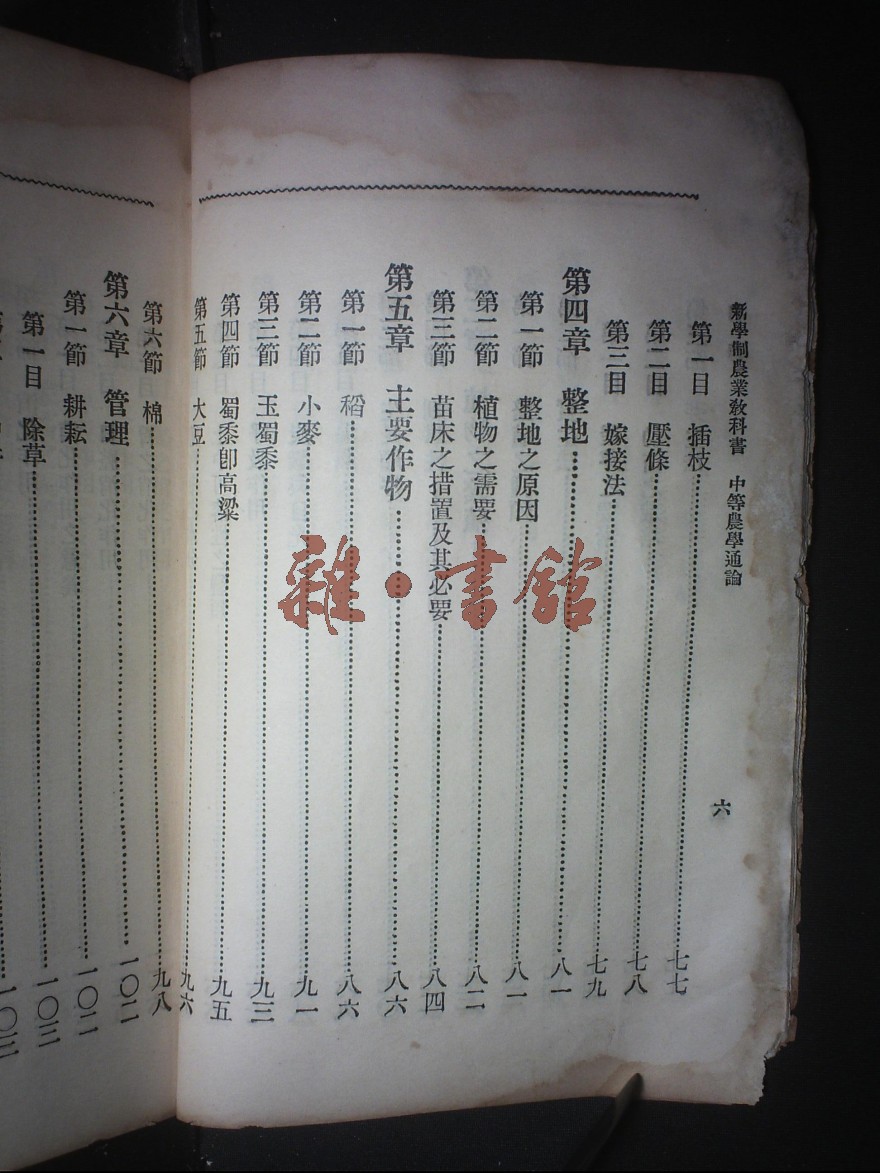 新學制農業教科書　中等農學通論
六
第一目　插枝…七七
第二目　壓條…七八
第三目　嫁接法…七九
第四章　整地…八一
第一節　整地之原因…八一
第二節　植物之需要…八二
第三節　苗床之措置及其必要…八四
第五章　主要作物…八六
第一節　稻…八六
第二節　小麥…九一
第三節　玉蜀黍…九三
第四節　蜀黍卽高粱…九五
第五節　大豆…九六
第六節　棉…九八
第六章　管理…一〇二
第一節　耕耘…一〇二
第一目　除草…一〇三
一〇三
雜·書館